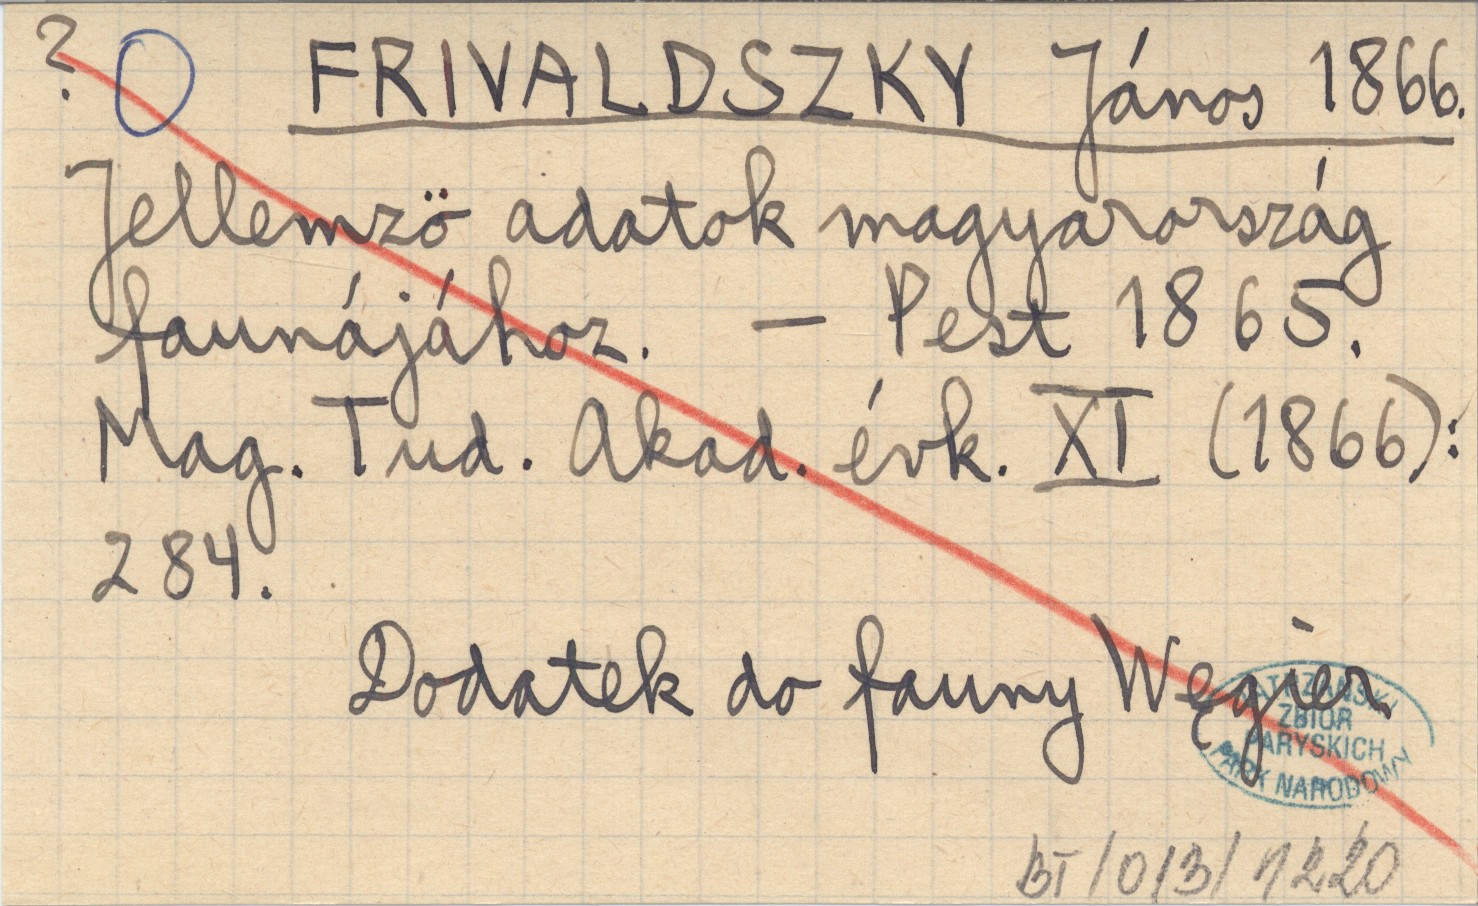 ? O FRIVALDSZKY János 1866.
Jellemző adatok magyarország
faunájához. – Pest 1865.
Mag. Tud. Akad. évk. XI (1866):
284.
Dodatek do fauny Węgier
ZBIÓR
PARYSKICH
PARK NARODOWY
BT/0/3/1220